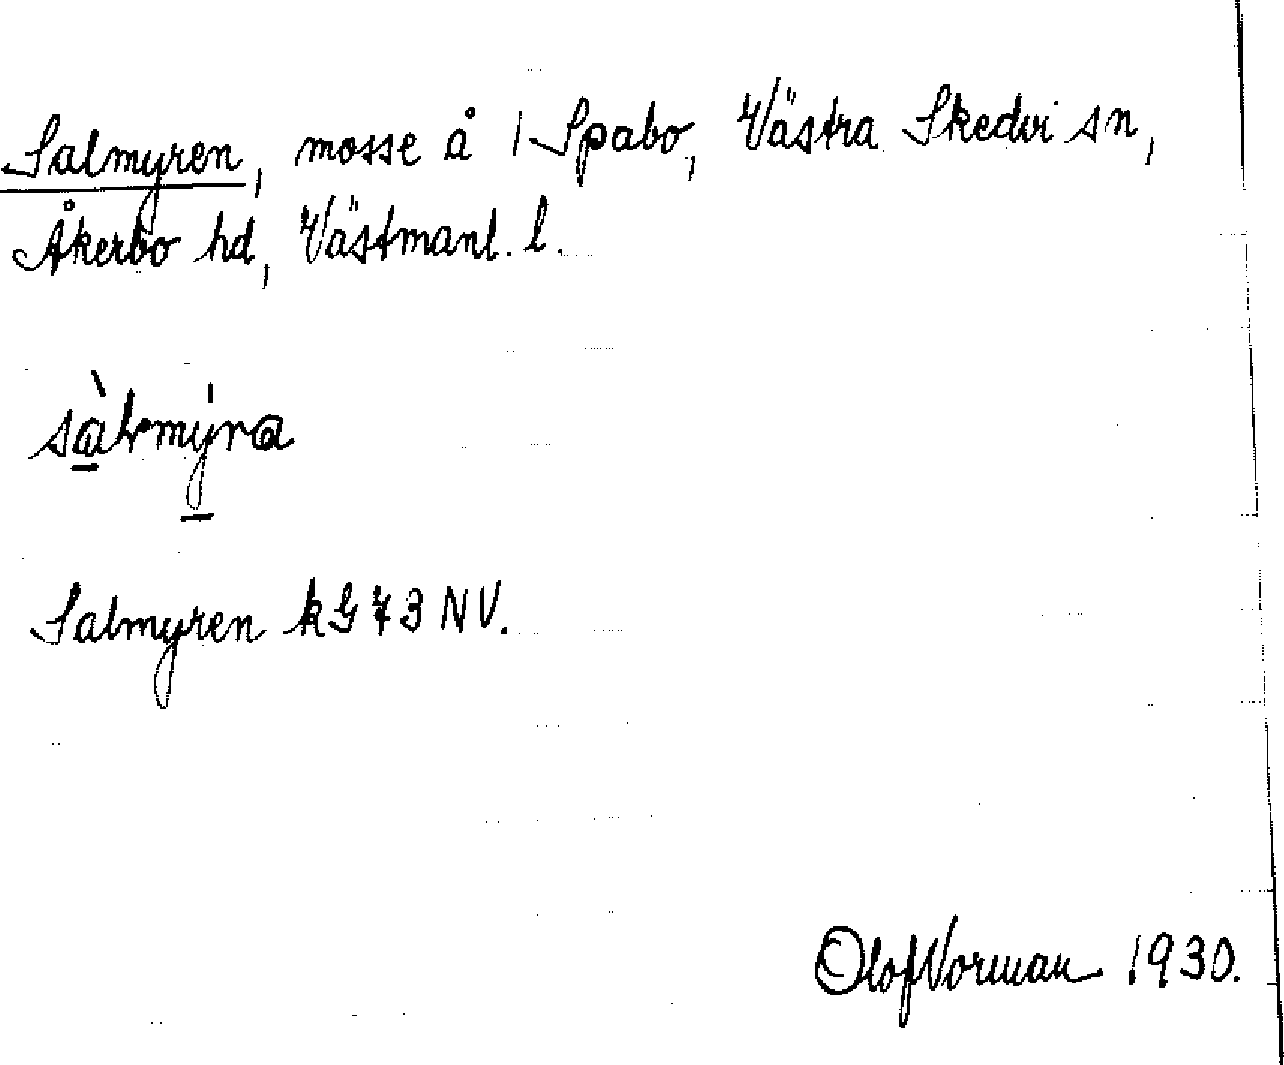 Salmyren, mosse å 1 Spabo, Västra Skedvi sn,
Åkerbo hd, Västmanl. l.
Salmyren kG 73 NV.
Olof Norman 1930.